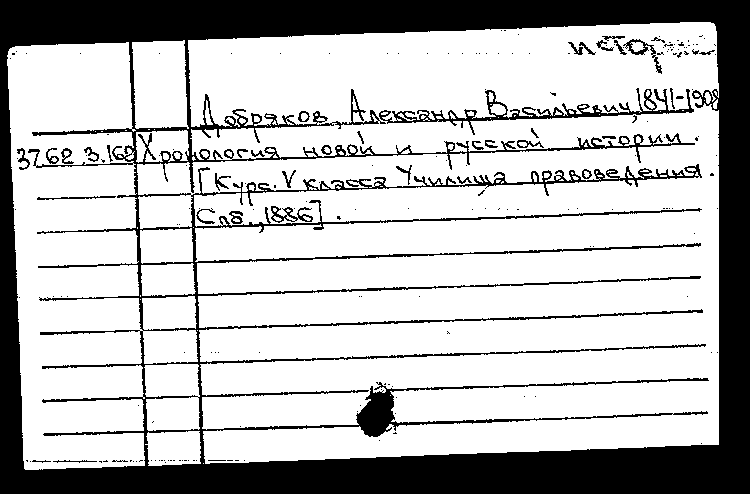 Добряков, Александр Васильевич, 1841-1908
37.62 3.162 Хронология новой и русской истории.
[Курс. V класса Училища правоведения.
Спб., 1886].